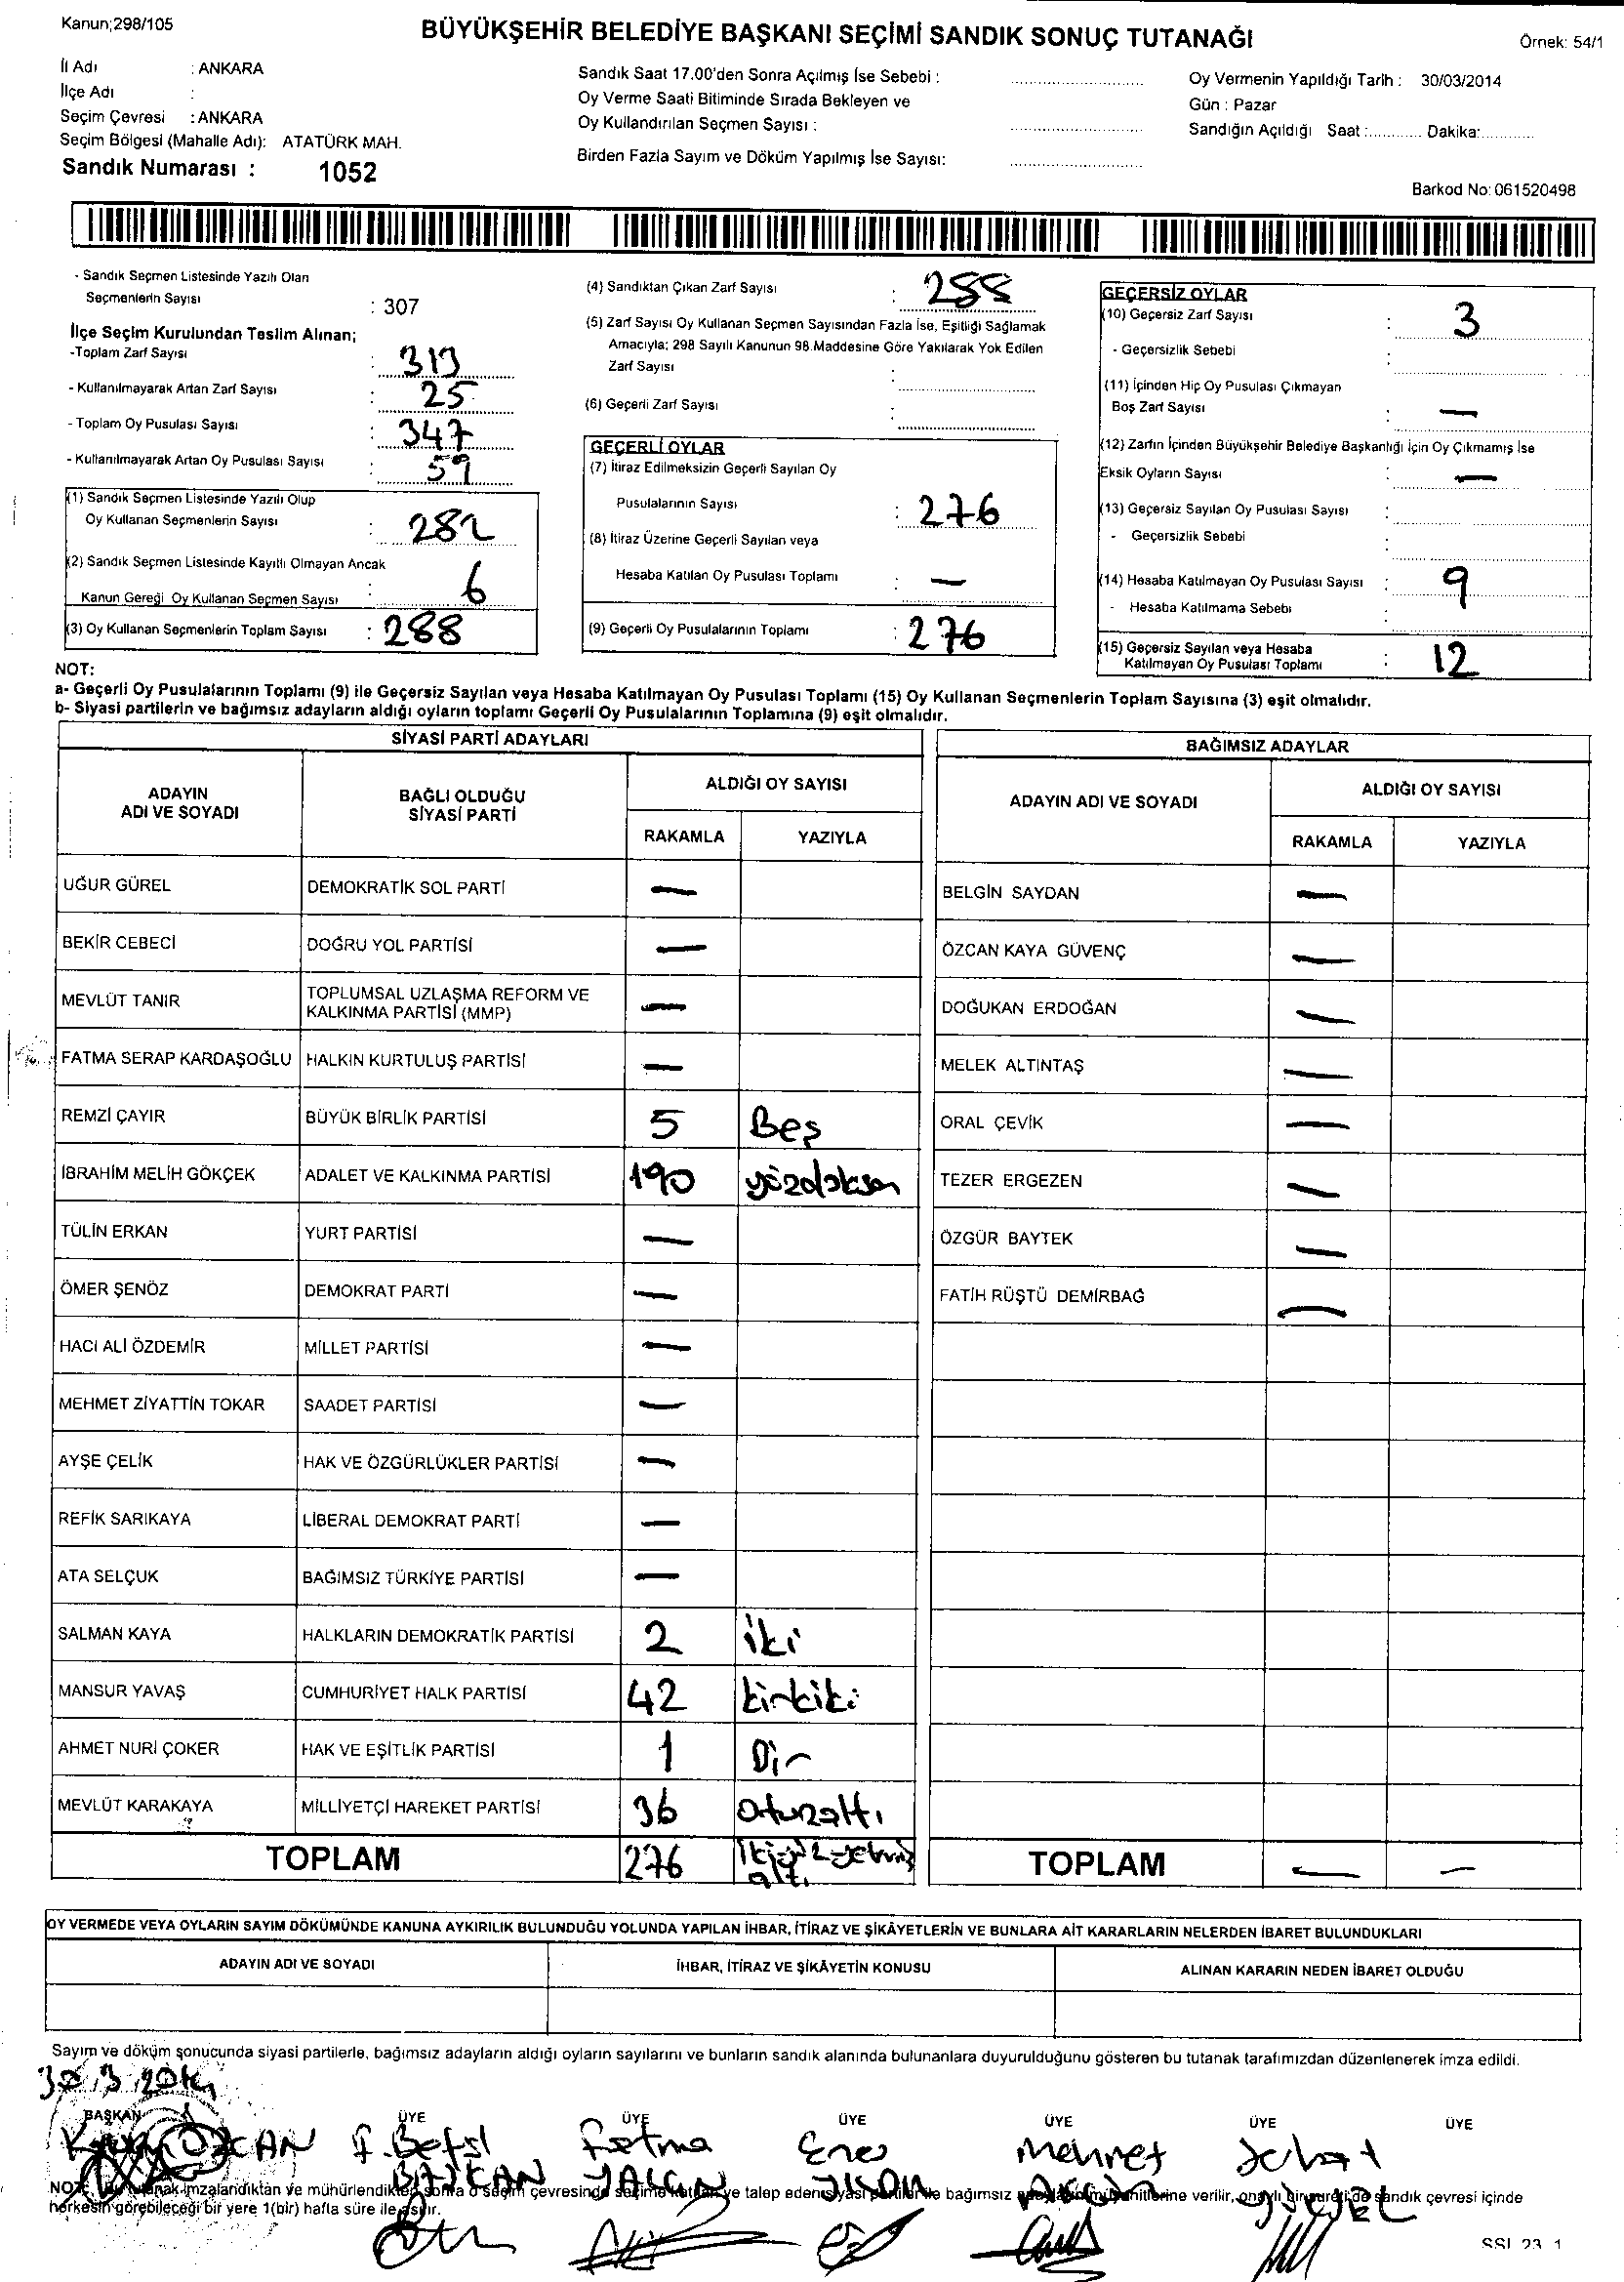 Kanun;298/105
BÜYÜKŞEHİR BELEDİYE BAŞKANI SEÇİMİ SANDIK SONUÇ TUTANAĞI
Örnek: 54/1
İl Adı : ANKARA
İlçe Adı :
Seçim Çevresi : ANKARA
Seçim Bölgesi (Mahalle Adı): ATATÜRK MAH.
Sandık Numarası : 1052
Sandık Saat 17.00'den Sonra Açılmış İse Sebebi :
Oy Verme Saati Bitiminde Sırada Bekleyen ve
Oy Kullandırılan Seçmen Sayısı :
Birden Fazla Sayım ve Döküm Yapılmış İse Sayısı:
Oy Vermenin Yapıldığı Tarih : 30/03/2014
Gün : Pazar
Sandığın Açıldığı Saat :............ Dakika:............
Barkod No: 061520498
- Sandık Seçmen Listesinde Yazılı Olan
Seçmenlerin Sayısı : 307
İlçe Seçim Kurulundan Teslim Alınan;
-Toplam Zarf Sayısı : 313
- Kullanılmayarak Artan Zarf Sayısı : 25
- Toplam Oy Pusulası Sayısı : 347
- Kullanılmayarak Artan Oy Pusulası Sayısı : 59
(1) Sandık Seçmen Listesinde Yazılı Olup
Oy Kullanan Seçmenlerin Sayısı : 282
(2) Sandık Seçmen Listesinde Kayıtlı Olmayan Ancak
Kanun Gereği Oy Kullanan Seçmen Sayısı : 6
(3) Oy Kullanan Seçmenlerin Toplam Sayısı : 288
(4) Sandıktan Çıkan Zarf Sayısı : 288
(5) Zarf Sayısı Oy Kullanan Seçmen Sayısından Fazla İse, Eşitliği Sağlamak
Amacıyla; 298 Sayılı Kanunun 98.Maddesine Göre Yakılarak Yok Edilen
Zarf Sayısı :
(6) Geçerli Zarf Sayısı :
GEÇERLİ OYLAR
(7) İtiraz Edilmeksizin Geçerli Sayılan Oy
Pusulalarının Sayısı : 276
(8) İtiraz Üzerine Geçerli Sayılan veya
Hesaba Katılan Oy Pusulası Toplamı : —
(9) Geçerli Oy Pusulalarının Toplamı : 276
GEÇERSİZ OYLAR
(10) Geçersiz Zarf Sayısı : 3
- Geçersizlik Sebebi :
(11) İçinden Hiç Oy Pusulası Çıkmayan
Boş Zarf Sayısı : —
(12) Zarfın İçinden Büyükşehir Belediye Başkanlığı İçin Oy Çıkmamış İse
Eksik Oyların Sayısı : —
(13) Geçersiz Sayılan Oy Pusulası Sayısı :
- Geçersizlik Sebebi :
(14) Hesaba Katılmayan Oy Pusulası Sayısı : 9
- Hesaba Katılmama Sebebi :
(15) Geçersiz Sayılan veya Hesaba
Katılmayan Oy Pusulası Toplamı : 12
NOT:
a- Geçerli Oy Pusulalarının Toplamı (9) ile Geçersiz Sayılan veya Hesaba Katılmayan Oy Pusulası Toplamı (15) Oy Kullanan Seçmenlerin Toplam Sayısına (3) eşit olmalıdır.
b- Siyasi partilerin ve bağımsız adayların aldığı oyların toplamı Geçerli Oy Pusulalarının Toplamına (9) eşit olmalıdır.
SİYASİ PARTİ ADAYLARI
ADAYIN
ADI VE SOYADI
BAĞLI OLDUĞU
SİYASİ PARTİ
ALDIĞI OY SAYISI
RAKAMLA YAZIYLA
UĞUR GÜREL DEMOKRATİK SOL PARTİ —
BEKİR CEBECİ DOĞRU YOL PARTİSİ —
MEVLÜT TANIR TOPLUMSAL UZLAŞMA REFORM VE
KALKINMA PARTİSİ (MMP) —
FATMA SERAP KARDAŞOĞLU HALKIN KURTULUŞ PARTİSİ —
REMZİ ÇAYIR BÜYÜK BİRLİK PARTİSİ 5 Beş
İBRAHİM MELİH GÖKÇEK ADALET VE KALKINMA PARTİSİ 190 yüzdoksan
TÜLİN ERKAN YURT PARTİSİ —
ÖMER ŞENÖZ DEMOKRAT PARTİ —
HACI ALİ ÖZDEMİR MİLLET PARTİSİ —
MEHMET ZİYATTİN TOKAR SAADET PARTİSİ —
AYŞE ÇELİK HAK VE ÖZGÜRLÜKLER PARTİSİ —
REFİK SARIKAYA LİBERAL DEMOKRAT PARTİ —
ATA SELÇUK BAĞIMSIZ TÜRKİYE PARTİSİ —
SALMAN KAYA HALKLARIN DEMOKRATİK PARTİSİ 2 iki
MANSUR YAVAŞ CUMHURİYET HALK PARTİSİ 42 kirkiki
AHMET NURİ ÇOKER HAK VE EŞİTLİK PARTİSİ 1 Bir
MEVLÜT KARAKAYA MİLLİYETÇİ HAREKET PARTİSİ 36 otuzaltı
TOPLAM 276 ikiyüz yetmiş
altı
BAĞIMSIZ ADAYLAR
ADAYIN ADI VE SOYADI
ALDIĞI OY SAYISI
RAKAMLA YAZIYLA
BELGİN SAYDAN —
ÖZCAN KAYA GÜVENÇ —
DOĞUKAN ERDOĞAN —
MELEK ALTINTAŞ —
ORAL ÇEVİK —
TEZER ERGEZEN —
ÖZGÜR BAYTEK —
FATİH RÜŞTÜ DEMİRBAĞ —
TOPLAM — —
OY VERMEDE VEYA OYLARIN SAYIM DÖKÜMÜNDE KANUNA AYKIRILIK BULUNDUĞU YOLUNDA YAPILAN İHBAR, İTİRAZ VE ŞİKÂYETLERİN VE BUNLARA AİT KARARLARIN NELERDEN İBARET BULUNDUKLARI
ADAYIN ADI VE SOYADI
İHBAR, İTİRAZ VE ŞİKÂYETİN KONUSU
ALINAN KARARIN NEDEN İBARET OLDUĞU
Sayım ve döküm sonucunda siyasi partilerle, bağımsız adayların aldığı oyların sayılarını ve bunların sandık alanında bulunanlara duyurulduğunu gösteren bu tutanak tarafımızdan düzenlenerek imza edildi.
30.3.2014
BAŞKAN ÜYE ÜYE ÜYE ÜYE ÜYE ÜYE
ÖZCAN Fatma Enes Mehmet
YALÇIN YÜCEL
NOT: Bu tutanak imzalandıktan ve mühürlendikten sonra o seçim çevresinde seçime katılan ve talep eden siyasi partiler ile bağımsız verilir, onaylı bir sureti de sandık çevresi içinde
herkesin görebileceği bir yere 1(bir) hafta süre ile asılır.